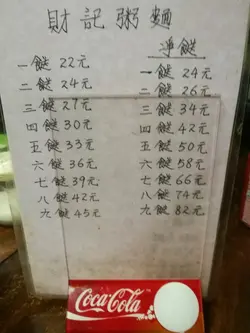 財記粥麵
淨餸
一餸 22元
一餸 24元
二餸 24元
二餸 26元
三餸 27元
三餸 34元
四餸 30元
四餸 42元
五餸 33元
五餸 50元
六餸 36元
六餸 58元
七餸 39元
七餸 66元
八餸 42元
八餸 74元
九餸 45元
九餸 82元
Coca-Cola